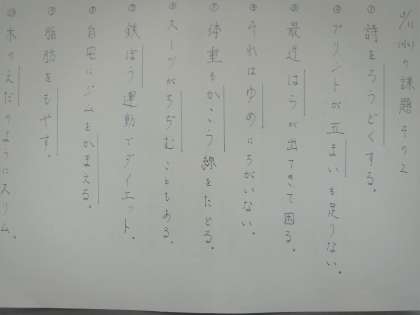 9/11(火)の課題その2
①詩をろうどくする。
②プリントが五まいも足りない。
③それはゆめにちがいない。
④最近はらが出てきて困る。
⑦体重もかこう線をたどる。
⑧スーツがちぢむこともある。
⑨鉄ぼう運動でダイエット。
⑩自宅にジムをかまえる。
⑪脂肪をもやす。
⑫木のえだのようにスリム。